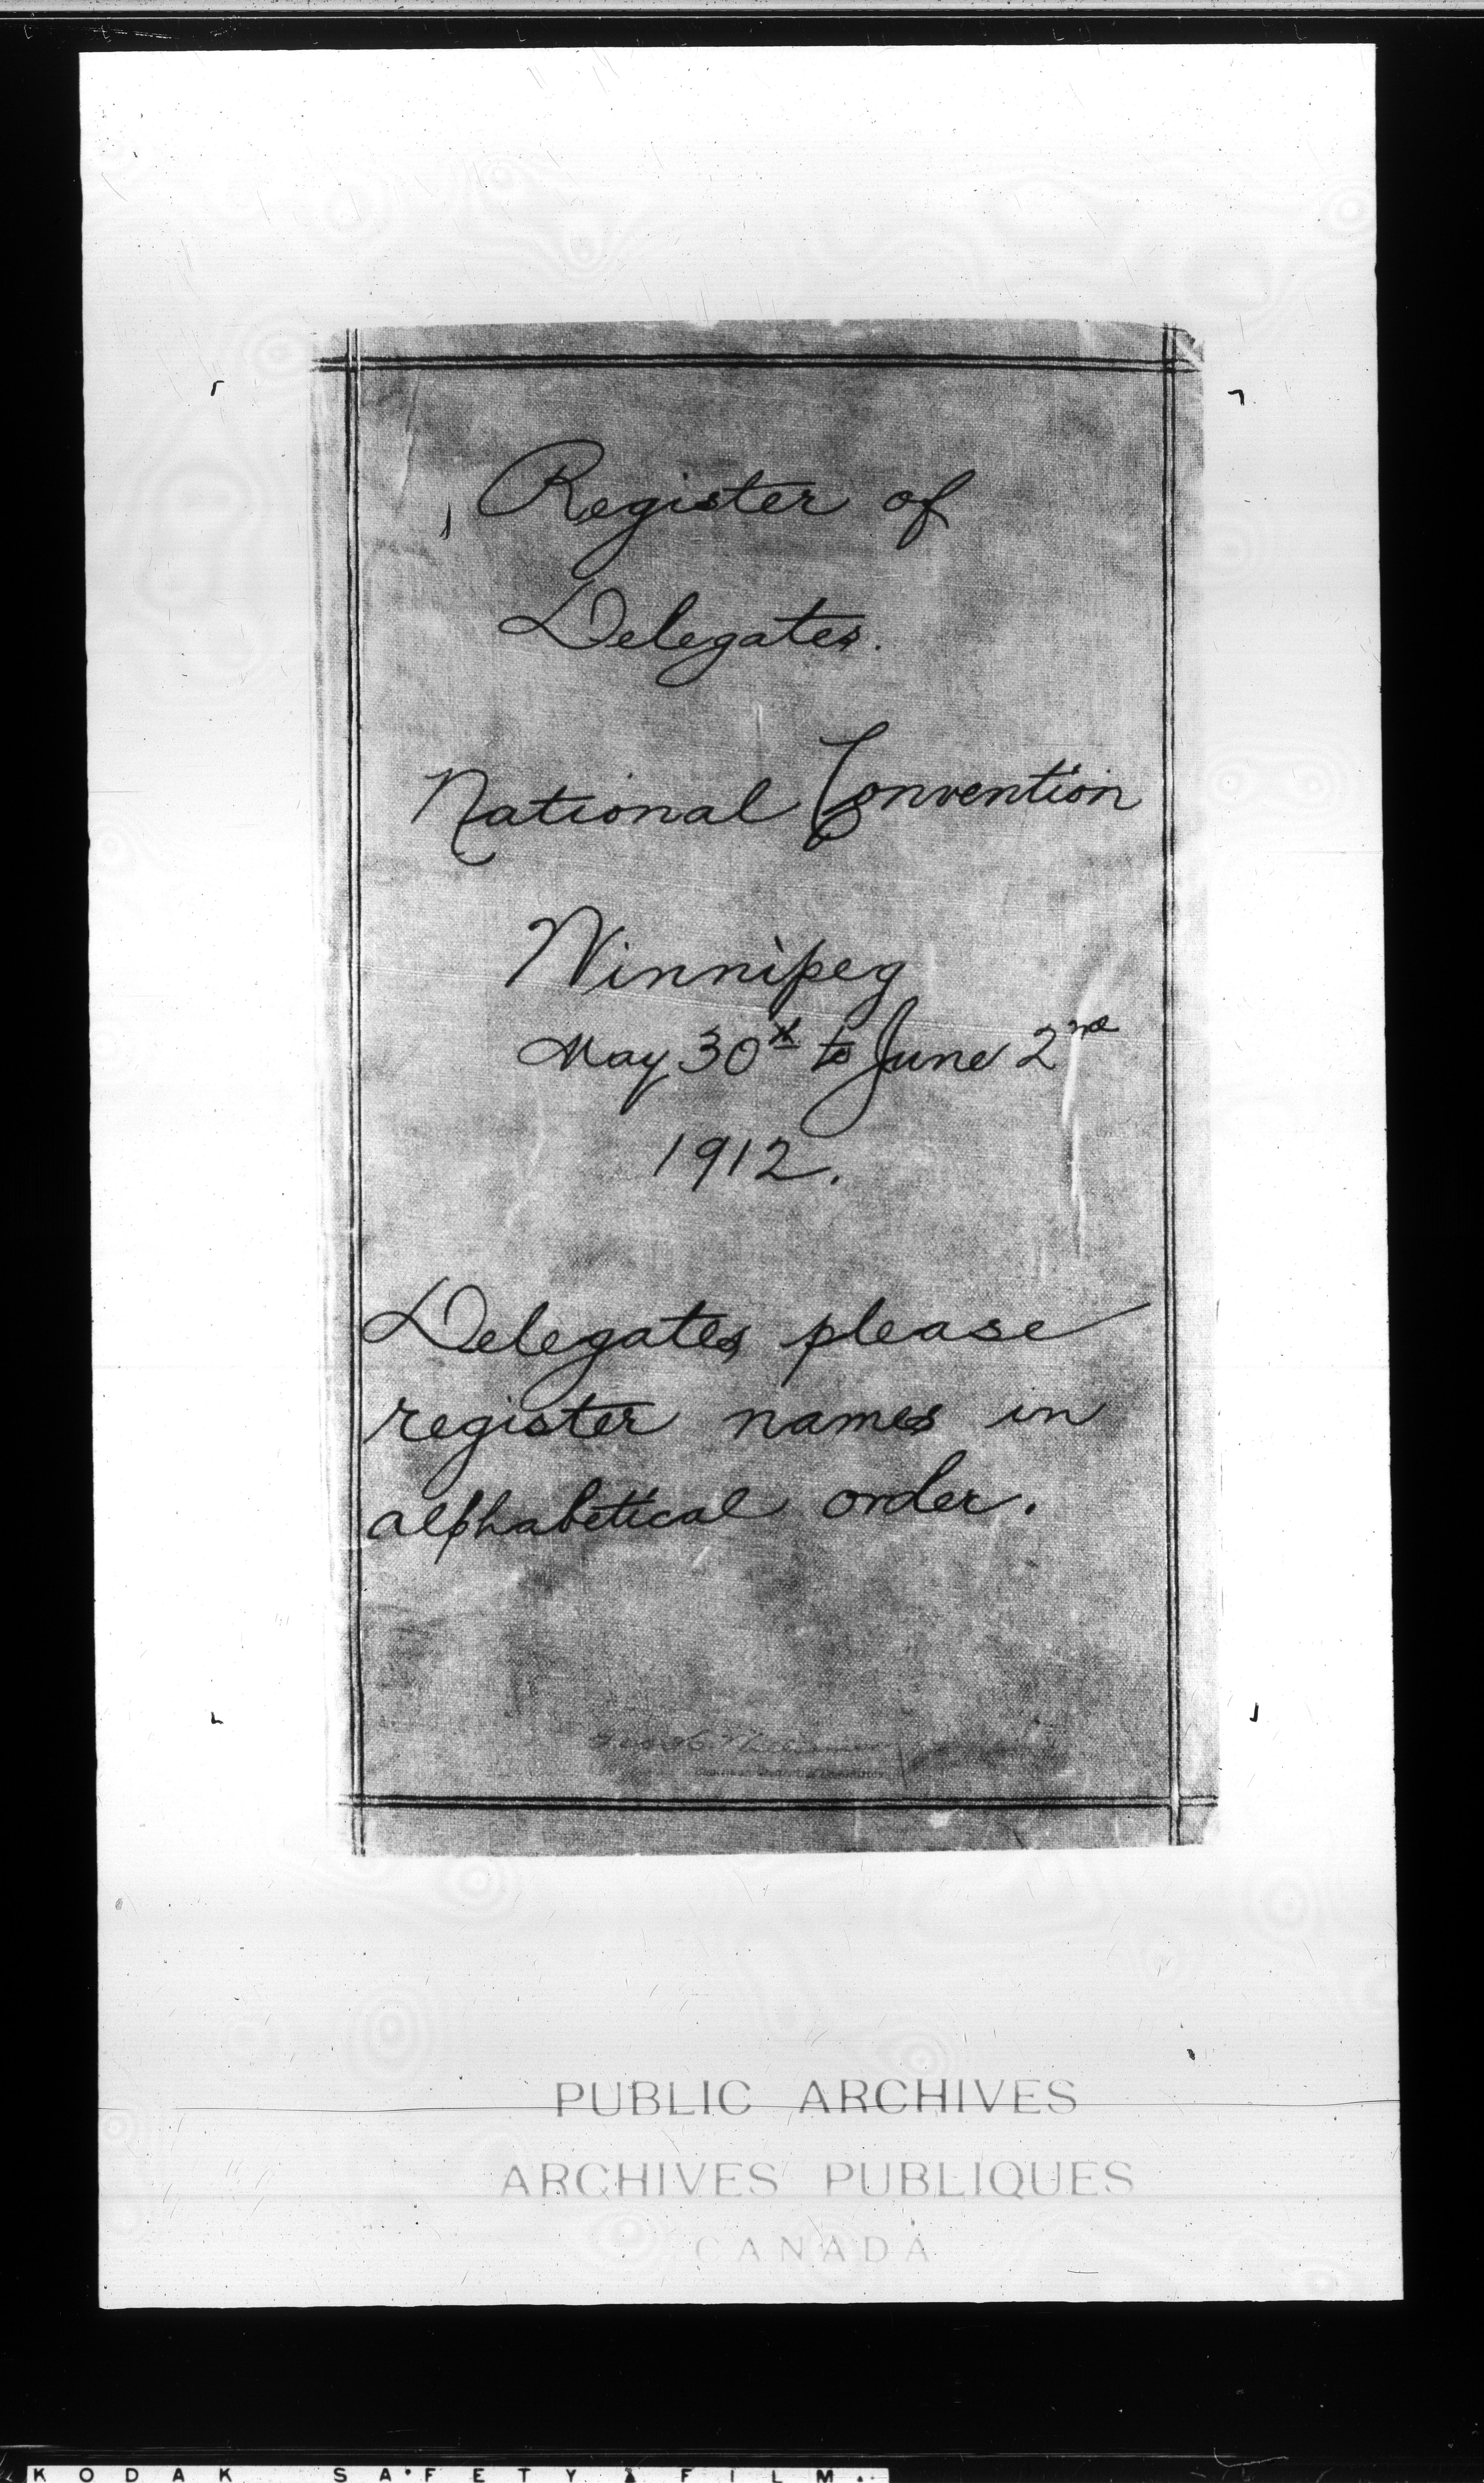 Register of
Delegates.
National Convention
Winnipeg
May 30th to June 2nd
1912.
Delegates please
register names in
alphabetical order.
PUBLIC ARCHIVES
ARCHIVES PUBLIQUES
CANADA
KODAK SAFETY FILM